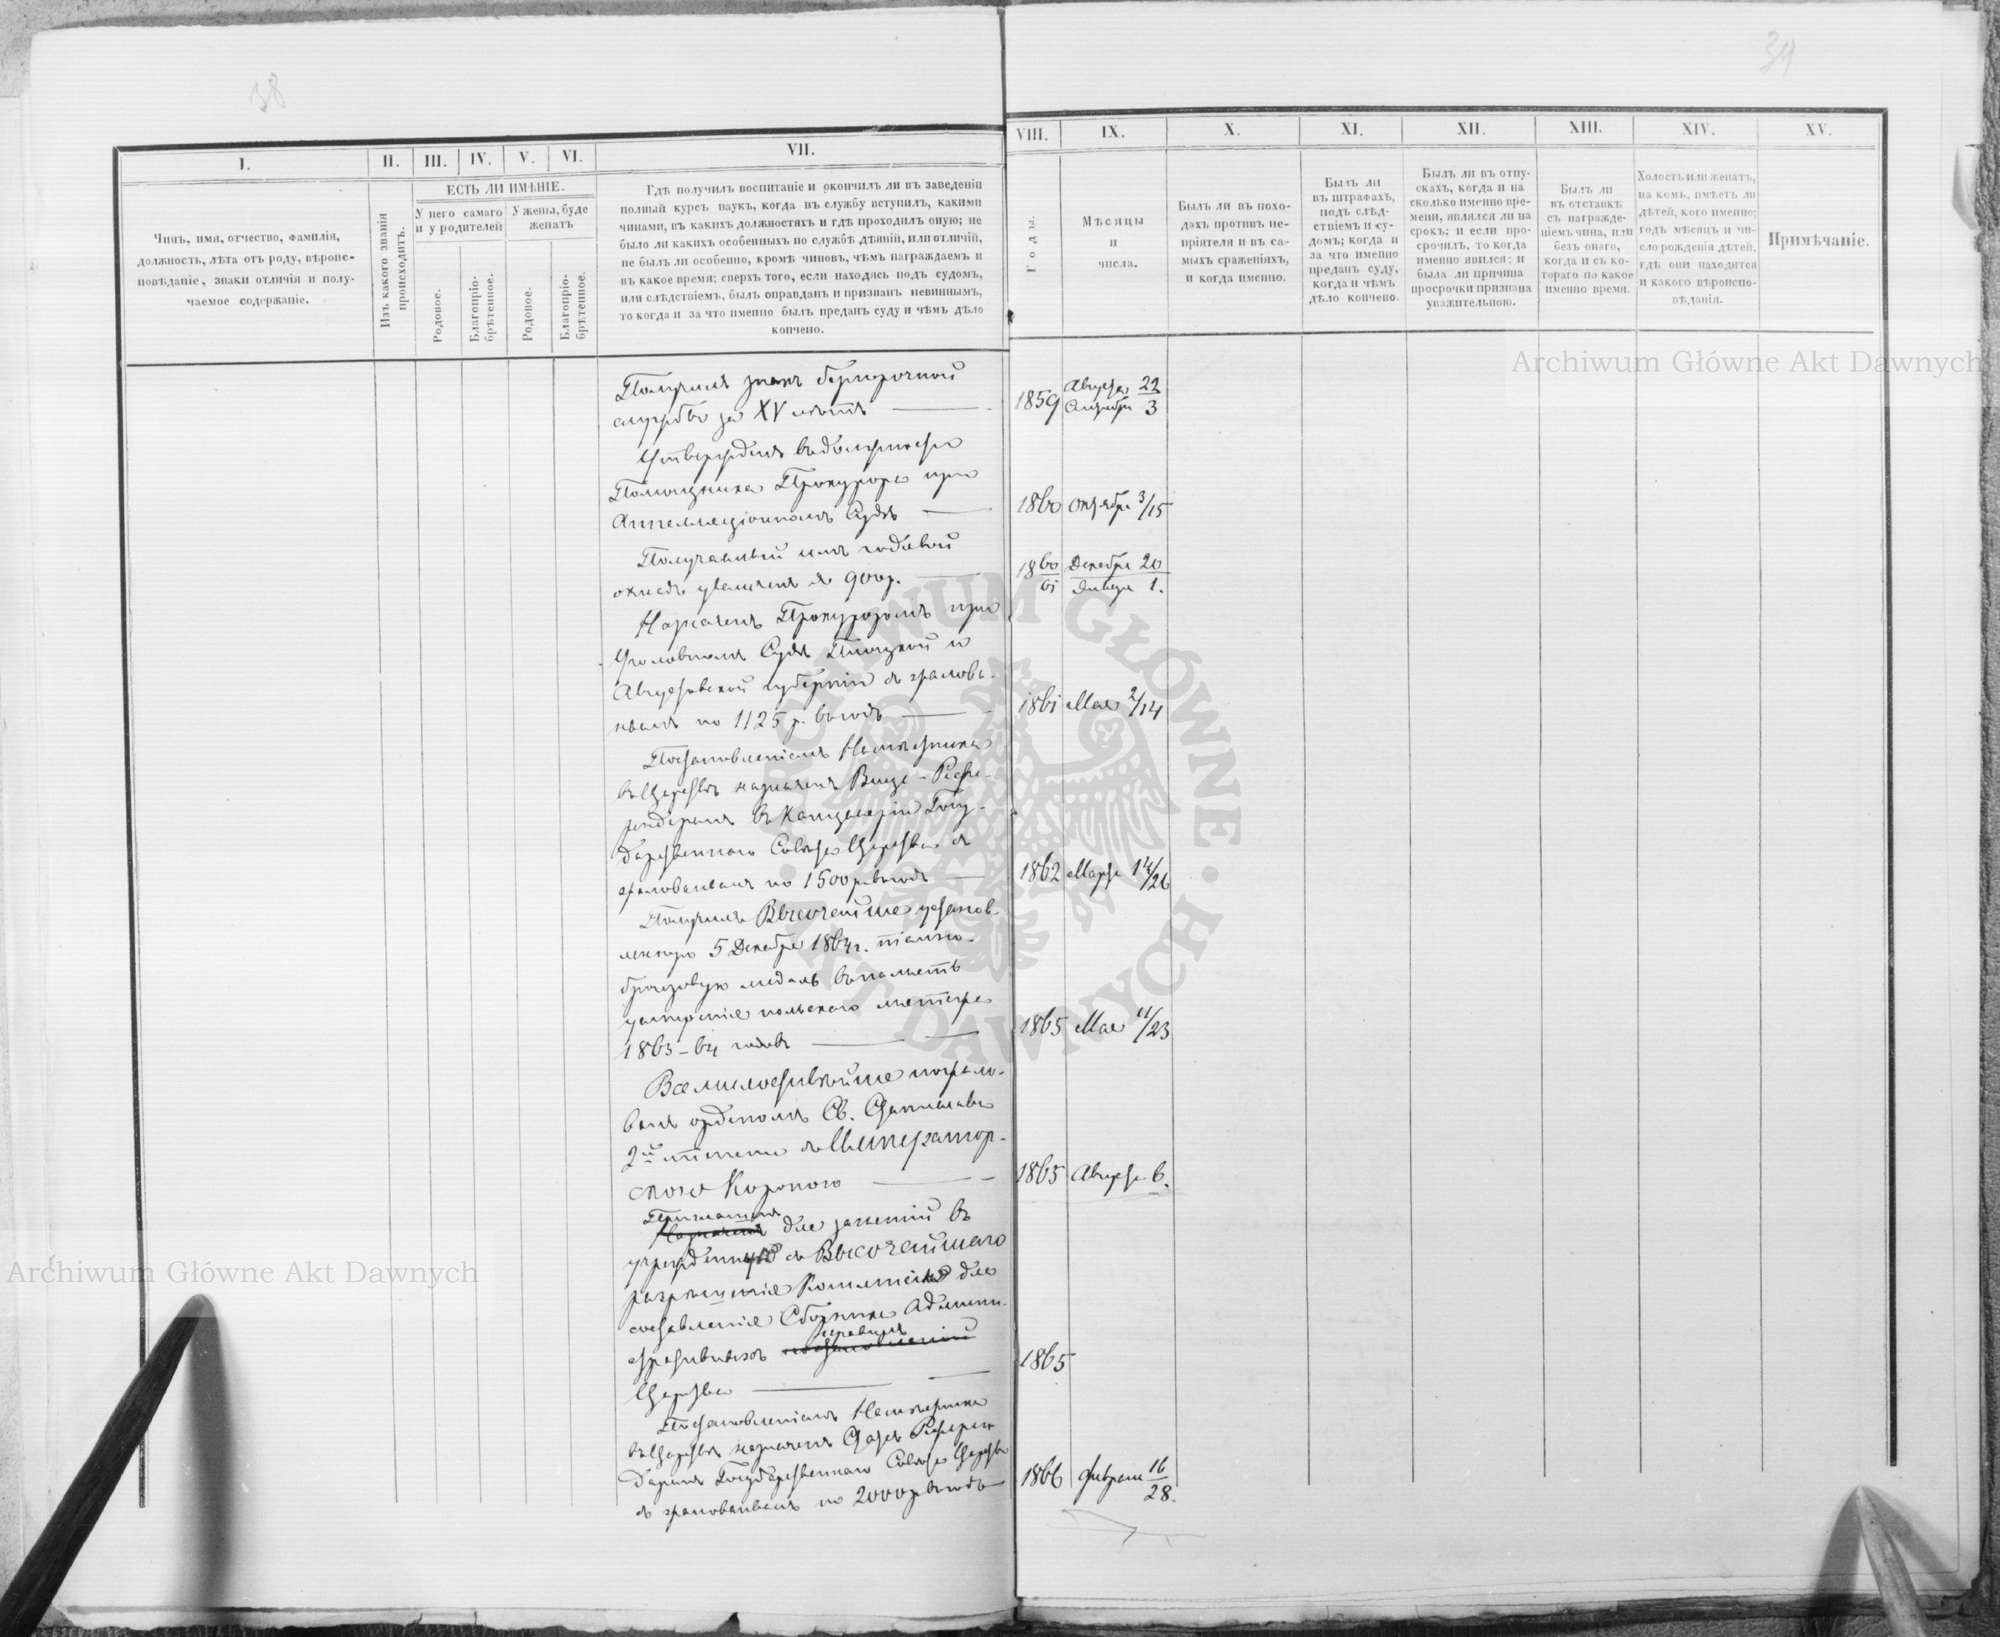 38
34
I.
II.
III.
IV.
V.
VI.
VII.
VIII.
IX.
X.
XI.
XII.
XIII.
XIV.
XV.
Чинъ, имя, отчество, фамилія,
должность, лѣта отъ роду, вѣроис-
повѣданіе, знаки отличія и полу-
чаемое содержаніе.
Изъ какого званія
происходитъ.
ЕСТЬ ЛИ ИМѢНІЕ.
У него самаго
и у родителей
У жены, буде
женатъ
Родовое.
Благопріо-
брѣтенное.
Родовое.
Благопріо-
брѣтенное.
Гдѣ получилъ воспитаніе и окончилъ ли въ заведеніи
полный курсъ наукъ, когда въ службу вступилъ, какими
чинами, въ какихъ должностяхъ и гдѣ проходилъ оную; не
было ли какихъ особенныхъ по службѣ дѣяній, или отличій,
не былъ ли особенно, кромѣ чиновъ, чѣмъ награждаемъ и
въ какое время; сверхъ того, если находясь подъ судомъ,
или слѣдствіемъ, былъ оправданъ и признанъ невиннымъ,
то когда и за что именно былъ преданъ суду и чѣмъ дѣло
кончено.
Годы.
Мѣсяцы
и
числа.
Былъ ли въ похо-
дахъ противъ не-
пріятеля и въ са-
мыхъ сраженіяхъ,
и когда именно.
Былъ ли
въ штрафахъ,
подъ слѣд-
ствіемъ и су-
домъ; когда и
за что именно
преданъ суду,
когда и чѣмъ
дѣло кончено.
Былъ ли въ отпу-
скахъ, когда и на
сколько именно вре-
мени, являлся ли на
срокъ; и если про-
срочилъ, то когда
именно явился; и
была ли причина
просрочки признана
уважительною.
Былъ ли
въ отставкѣ
съ награжде-
ніемъ чина, или
безъ онаго,
когда и съ ко-
тораго по какое
именно время.
Холостъ или женатъ,
на комъ, имѣетъ ли
дѣтей, кого именно;
годъ мѣсяцъ и чи-
сло рожденія дѣтей,
гдѣ они находятся
и какого вѣроиспо-
вѣданія.
Примѣчаніе.
Получилъ знакъ безпорочной
службы за XV лѣтъ
1859 Августа 22
Сентября 3
Утвержденъ въ должности
Помощника Прокурора при
Аппелляціонномъ Судѣ
1860 Октября 3/15
Получаемый имъ годовой
окладъ увеличенъ до 900 р.
1860 Декабря 20
61 Января 1.
Назначенъ Прокуроромъ при
Уголовномъ Судѣ Плоцкой и
Августовской губерніи съ жалова-
ньемъ по 1125 р. въ годъ
1861 Мая 2/14
Постановленіемъ Намѣстника
въ Царствѣ назначенъ Вице-Рефе-
рендаремъ въ Канцеляріи Госу-
дарственнаго Совѣта Царства съ
жалованьемъ по 1500 р. въ годъ
1862 Марта 14/26
Получилъ Высочайше установ-
ленную 5 Декабря 1864 г. темно-
бронзовую медаль въ память
усмиренія польскаго мятежа
1863-64 годовъ
1865 Мая 11/23
Всемилостивѣйше пожало-
ванъ орденомъ Св. Станислава
2й степени съ Император-
скою Короною
1865 Августа 6.
Приглашенъ
Назначенъ для занятій въ
съ Высочайшаго
разрѣшенія для
составленія Сборника Админи-
стративныхъ
правилъ
постановленій
Царства
1865
Постановленіемъ Намѣстника
въ Царствѣ назначенъ Статсъ Референ-
даремъ Государственнаго Совѣта Царства
съ жалованьемъ по 2000 р. въ годъ
1866 Февраля 16
28.
Archiwum Główne Akt Dawnych
Archiwum Główne Akt Dawnych
ARCHIWUM GŁÓWNE · AKT DAWNYCH ·